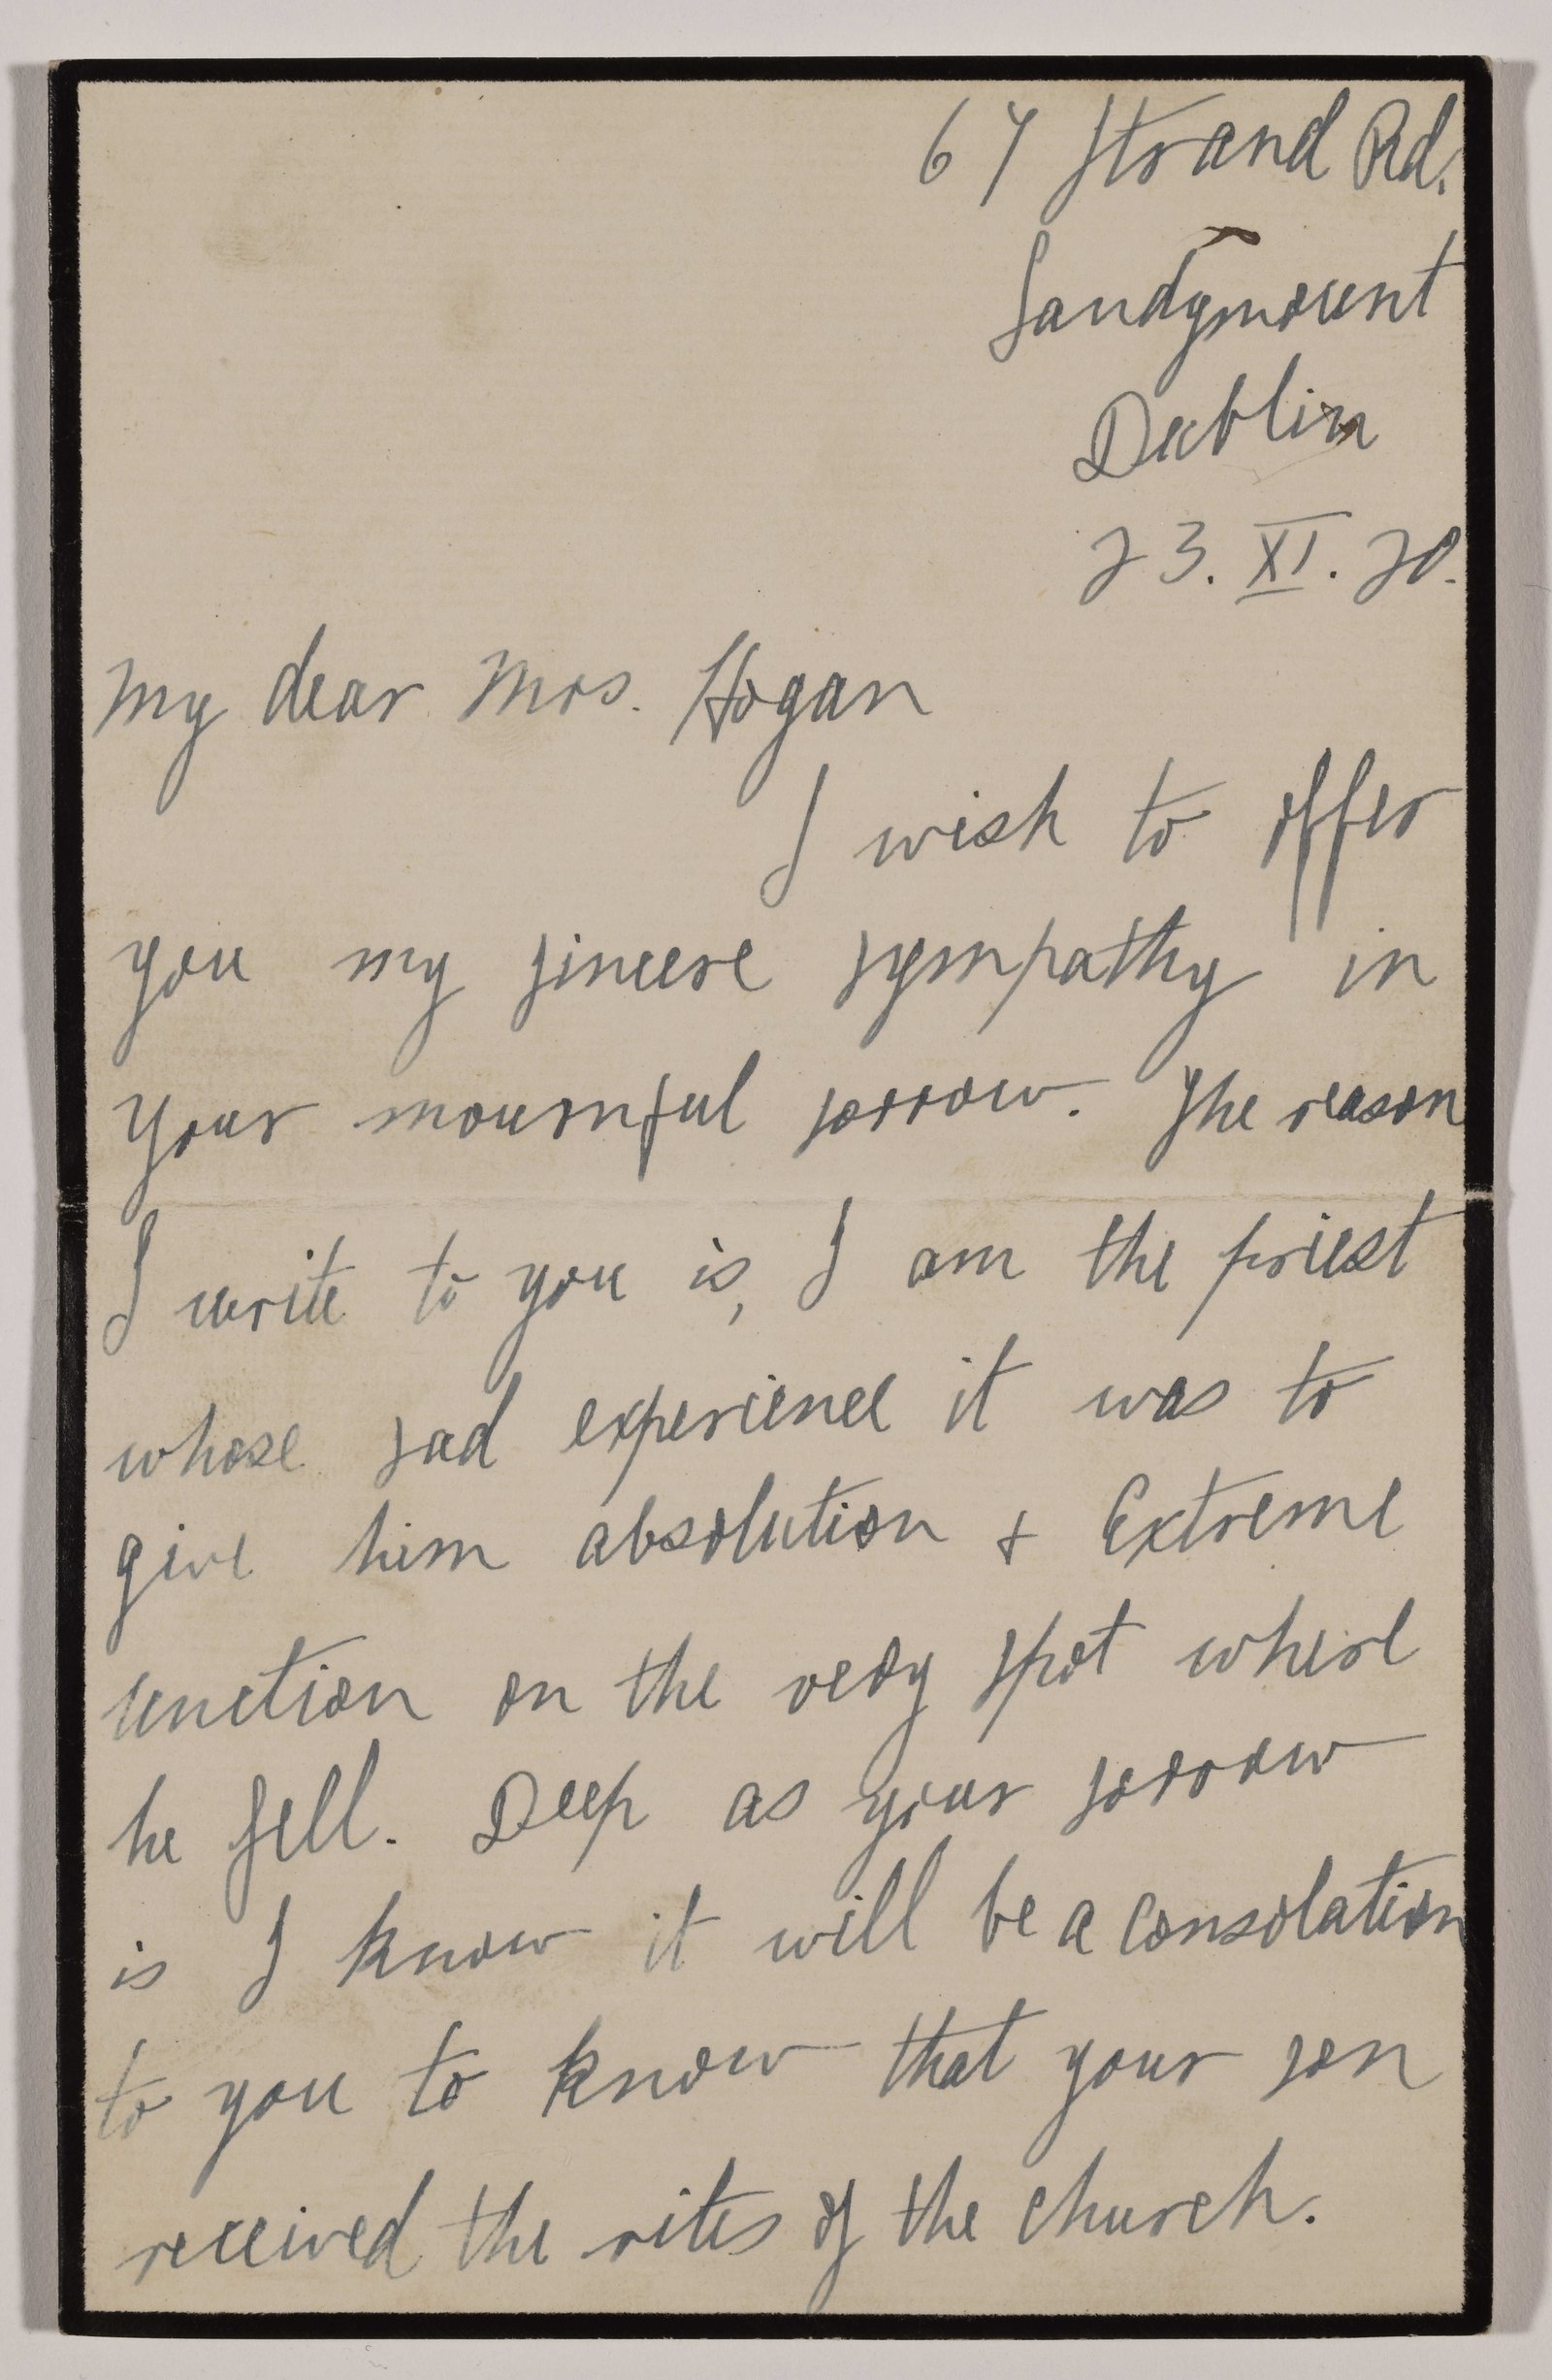 67 Strand Rd.
Sandymount
Dublin
23. XI. 20.
My dear Mrs. Hogan
I wish to offer
you my sincere sympathy in
your mournful sorrow. The reason
I write to you is, I am the priest
whose sad experience it was to
give him absolution & Extreme
unction on the very spot where
he fell. Deep as your sorrow
is I know it will be a consolation
to you to know that your son
received the rites of the church.